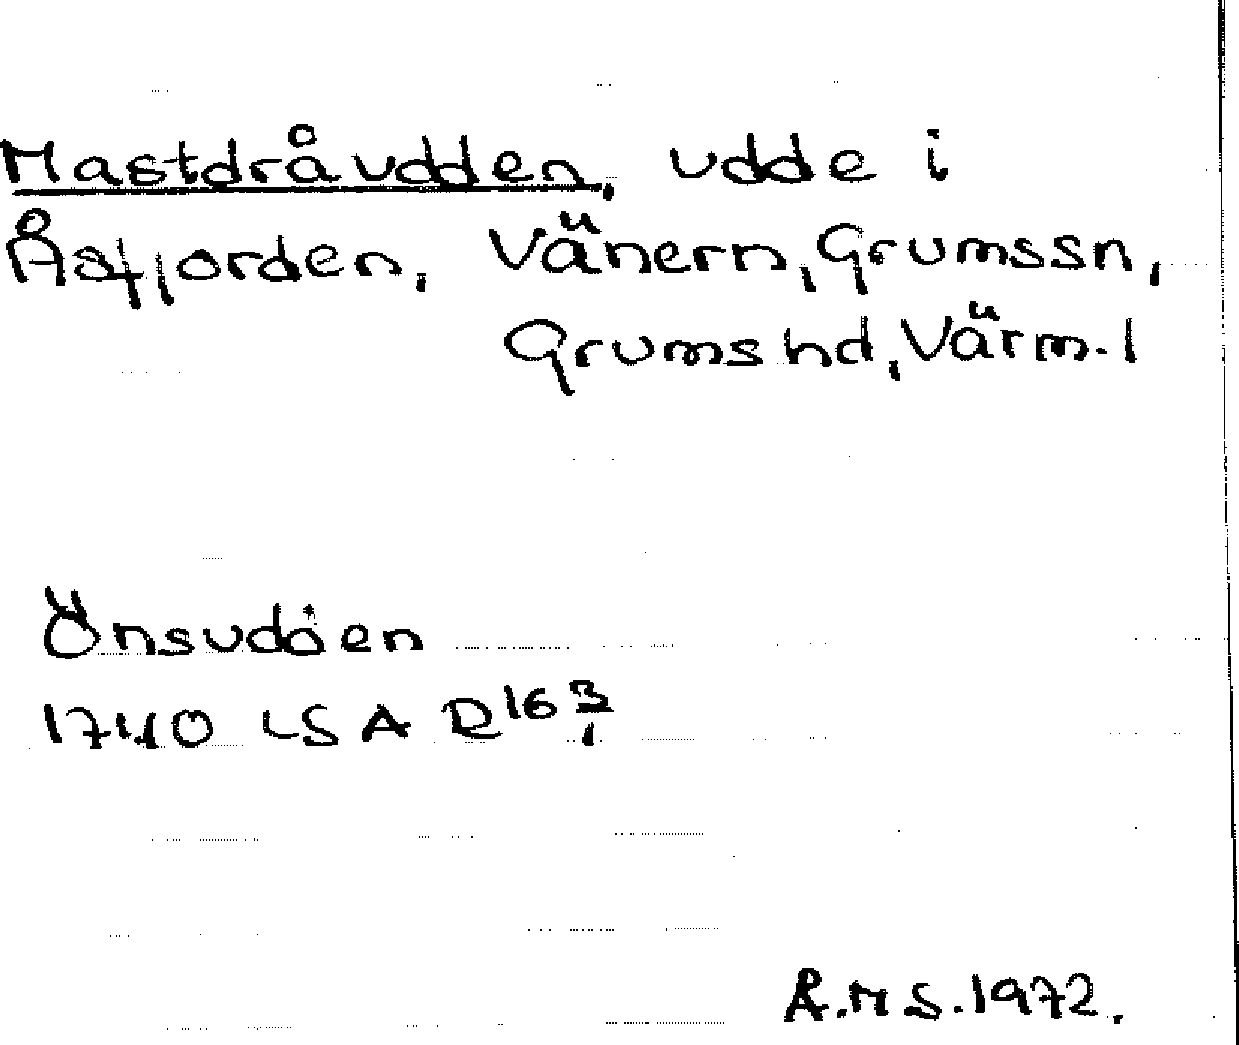 Mastdråudden, udde i
Åsfjorden, Vänern, Grumssn,
Grumshd, Värml
Önsudden
1740 LSA R16 3/1
Å.M S. 1972.